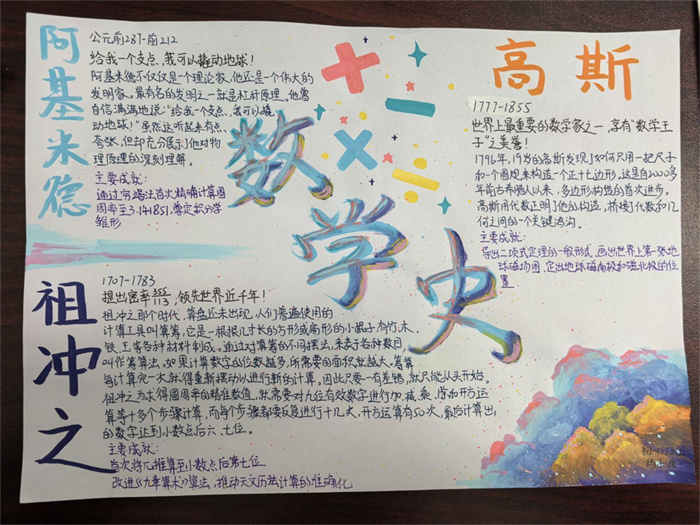 阿基米德
公元前287-前212
给我一个支点,我可以撬动地球!
阿基米德不仅仅是个理论家,他还是一个伟大的
发明家。最有名的发明之一就是杠杆原理。他曾
自信满满地说:“给我一个支点,我可以撬
动地球!”虽然这听起来有点
夸张,但却充分展示了他对物
理原理的深刻理解。
主要成就:
通过穷竭法首次精确计算圆
周率至3.141851,奠定积分学
雏形
数学史
高斯
1777-1855
世界上最重要的数学家之一,享有“数学王
子”之美誉!
1796年,19岁的高斯发现了如何只用一把尺子
和一个圆规来构造一个正十七边形,这是自2000多
年前古希腊人以来,多边形构造的首次进步。
高斯用代数证明了他的构造,桥接了代数和几
何之间的一个关键鸿沟。
主要成就:
导出二项式定理的一般形式,画出世界上第一张地
球磁场图,定出地球磁南极和磁北极的位
置
祖冲之
1707-1783
提出密率355/113,领先世界近千年!
祖冲之那个时代,算盘还未出现,人们普遍使用的
计算工具叫算筹,它是一根根几寸长的方形或扁形的小棍子,有竹、木、
铁、玉等各种材料制成。通过对算筹的不同摆法,来表示各种数目,
叫作筹算法。如果计算数字的位数越多,所需要的面积就越大。筹算
每计算完一次就得重新摆动以进行新的计算。因此只要一有差错,就只能从头开始。
祖冲之为求得圆周率的精准数值,就需要对九位有效数字进行加、减、乘、除和开方运
算等十多个步骤计算,而每个步骤都要反复进行十几次,开方运算有50次,最后计算出
的数字达到小数点后六、七位。
主要成就:
首次将π推算至小数点后第七位
改进《九章算术》算法,推动天文历法计算的准确化